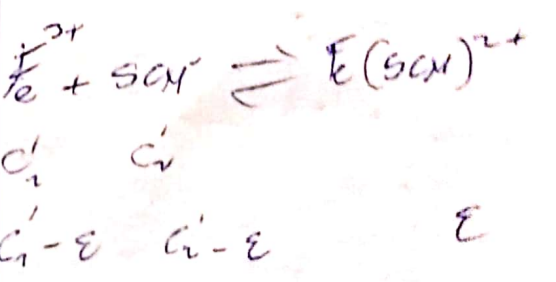 Fe³⁺ + SCN⁻ ⇌ Fe(SCN)²⁺
C'₁ C'₂
C'₁ - ε C'₂ - ε ε